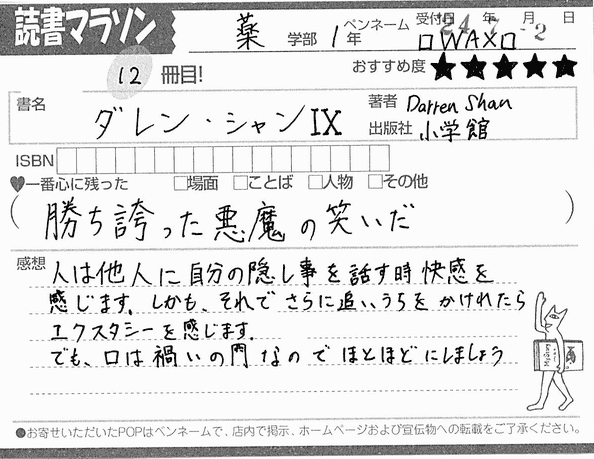 読書マラソン
薬 学部 1年
ペンネーム ロWAXロ
受付日 24年 7月 -2日
12 冊目!
おすすめ度 ★★★★★
書名 ダレン・シャンⅨ
著者 Darren Shan
出版社 小学館
ISBN
♥一番心に残った □場面 □ことば □人物 □その他
(勝ち誇った悪魔の笑いだ)
感想 人は他人に自分の隠し事を話す時快感を
感じます。しかも、それでさらに追いうちをかけれたら
エクスタシーを感じます。
でも、口は禍いの門なのでほとほどにしましょう
●お寄せいただいたPOPはペンネームで、店内で掲示、ホームページおよび宣伝物への転載をご了承ください。